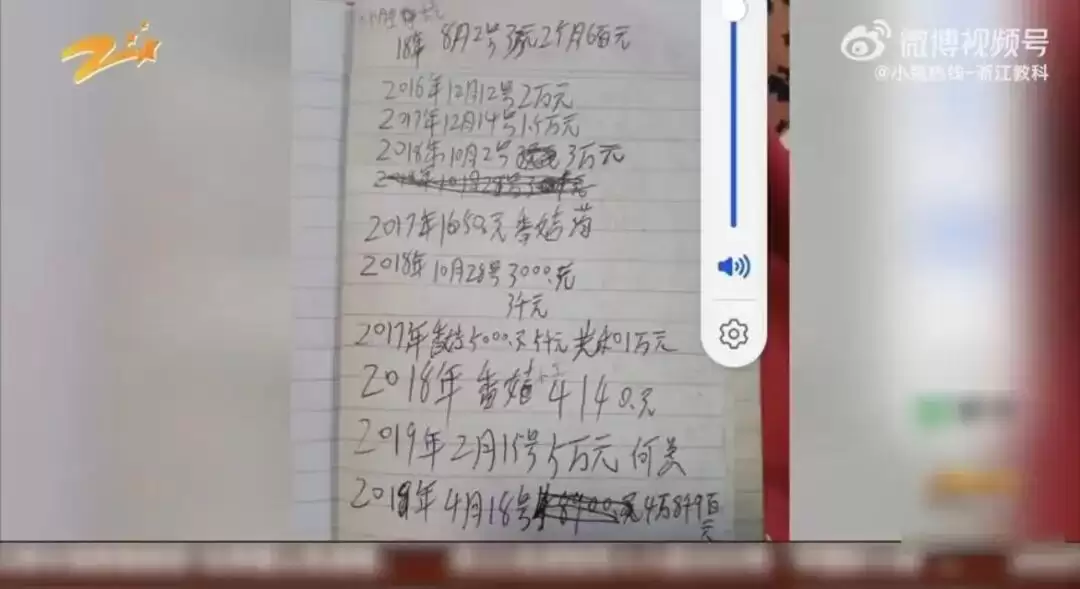 微博视频号
@小强热线-浙江教科
18年 8月2号3瓶2个月6百元
2016年12月12号2万元
2017年12月14号1.5万元
2018年10月2号 3万元
2017年1650元番茄苗
2018年10月28号3000.元
3千元
2017年 5000.元5千元 1万元
2018年番茄 4140.元
2019年2月15号5万元
4月18号 4万8千9百
元